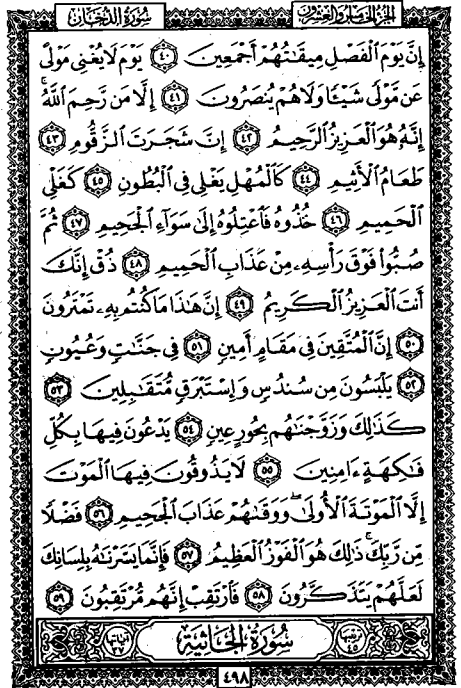 الجزء الخامس والعشرون سورة الدخان
إِنَّ يَوْمَ ٱلْفَصْلِ مِيقَٰتُهُمْ أَجْمَعِينَ ٤٠ يَوْمَ لَا يُغْنِى مَوْلًى
عَن مَّوْلًى شَيْـًٔا وَلَا هُمْ يُنصَرُونَ ٤١ إِلَّا مَن رَّحِمَ ٱللَّهُ ۚ
إِنَّهُۥ هُوَ ٱلْعَزِيزُ ٱلرَّحِيمُ ٤٢ إِنَّ شَجَرَتَ ٱلزَّقُّومِ ٤٣
طَعَامُ ٱلْأَثِيمِ ٤٤ كَٱلْمُهْلِ يَغْلِى فِى ٱلْبُطُونِ ٤٥ كَغَلْىِ
ٱلْحَمِيمِ ٤٦ خُذُوهُ فَٱعْتِلُوهُ إِلَىٰ سَوَآءِ ٱلْجَحِيمِ ٤٧ ثُمَّ
صُبُّوا۟ فَوْقَ رَأْسِهِۦ مِنْ عَذَابِ ٱلْحَمِيمِ ٤٨ ذُقْ إِنَّكَ
أَنتَ ٱلْعَزِيزُ ٱلْكَرِيمُ ٤٩ إِنَّ هَٰذَا مَا كُنتُم بِهِۦ تَمْتَرُونَ
٥٠ إِنَّ ٱلْمُتَّقِينَ فِى مَقَامٍ أَمِينٍ ٥١ فِى جَنَّٰتٍ وَعُيُونٍ
٥٢ يَلْبَسُونَ مِن سُندُسٍ وَإِسْتَبْرَقٍ مُّتَقَٰبِلِينَ ٥٣
كَذَٰلِكَ وَزَوَّجْنَٰهُم بِحُورٍ عِينٍ ٥٤ يَدْعُونَ فِيهَا بِكُلِّ
فَٰكِهَةٍ ءَامِنِينَ ٥٥ لَا يَذُوقُونَ فِيهَا ٱلْمَوْتَ
إِلَّا ٱلْمَوْتَةَ ٱلْأُولَىٰ ۖ وَوَقَىٰهُمْ عَذَابَ ٱلْجَحِيمِ ٥٦ فَضْلًا
مِّن رَّبِّكَ ۚ ذَٰلِكَ هُوَ ٱلْفَوْزُ ٱلْعَظِيمُ ٥٧ فَإِنَّمَا يَسَّرْنَٰهُ بِلِسَانِكَ
لَعَلَّهُمْ يَتَذَكَّرُونَ ٥٨ فَٱرْتَقِبْ إِنَّهُم مُّرْتَقِبُونَ ٥٩
ترتيبها ٤٥ سورة الجاثية آياتها ٣٧
٤٩٨